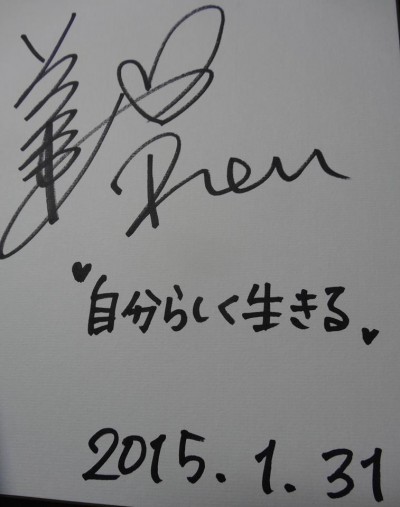 Ren
自分らしく生きる
2015.1.31